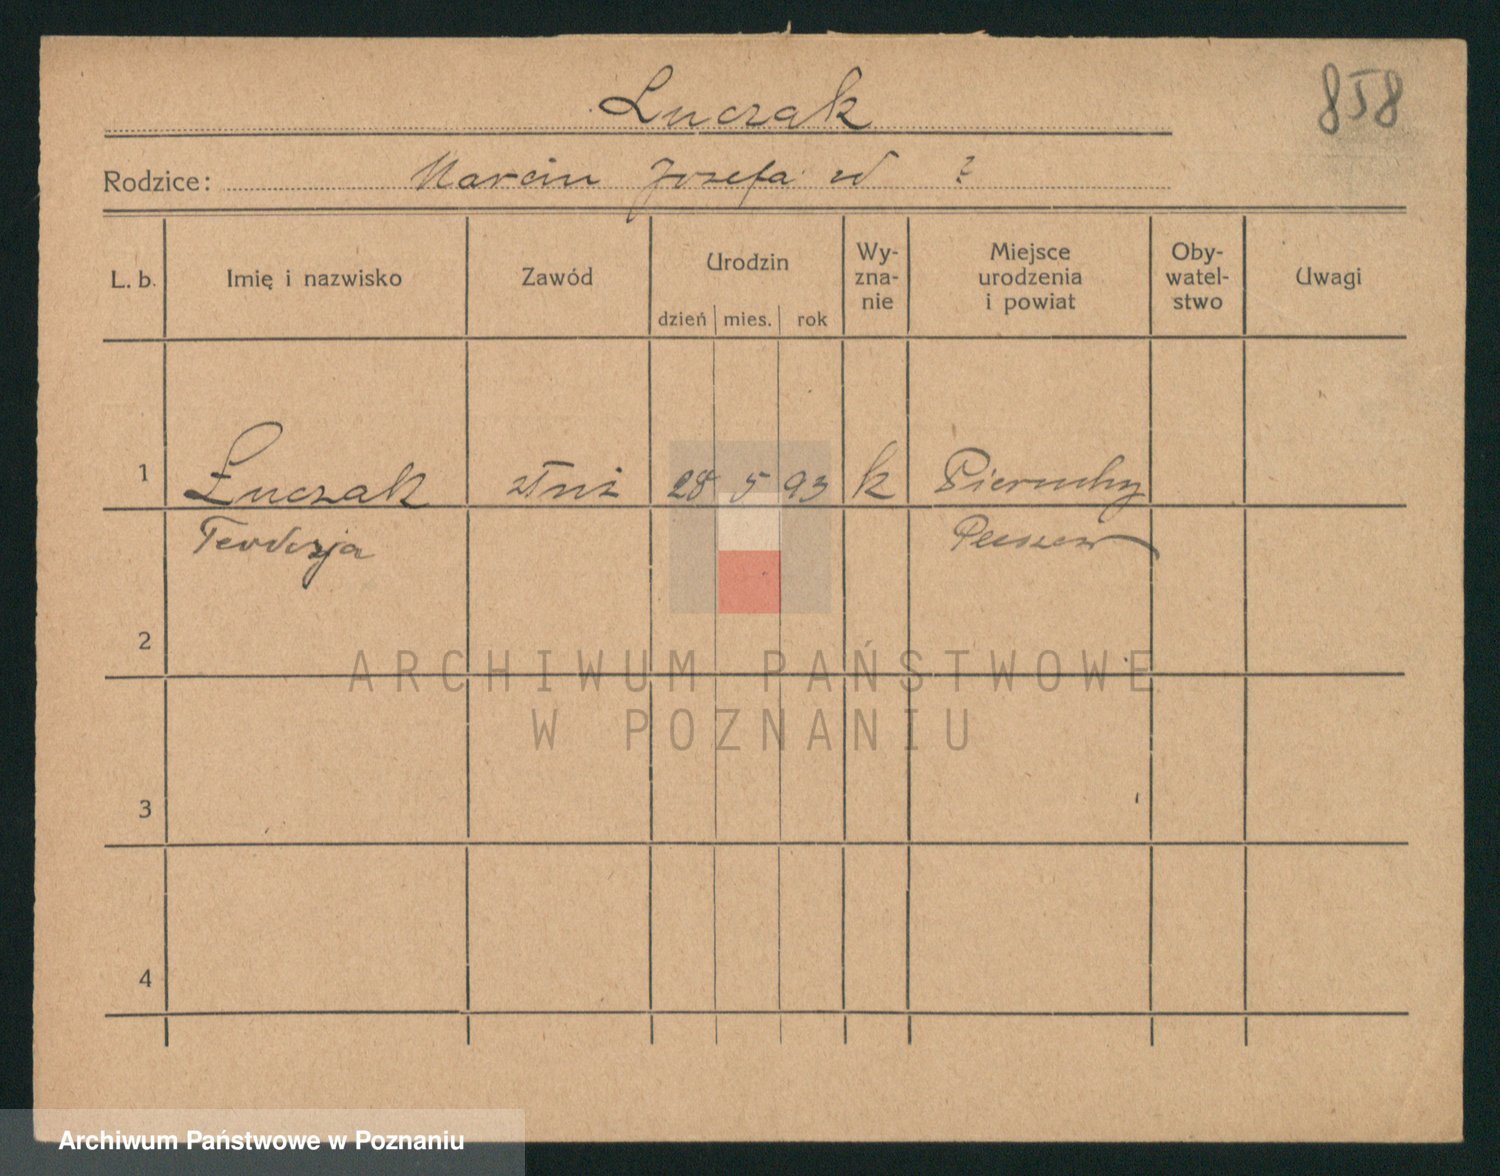 Łuczak
858
Rodzice: Marcin Józefa zd ?
L. b.
Imię i nazwisko
Zawód
Urodzin
dzień mies. rok
Wy-
zna-
nie
Miejsce
urodzenia
i powiat
Oby-
watel-
stwo
Uwagi
1 Łuczak 28 5 93 k Pieruchy
Teodozja Pleszew
2
3
4
ARCHIWUM PAŃSTWOWE
W POZNANIU
Archiwum Państwowe w Poznaniu